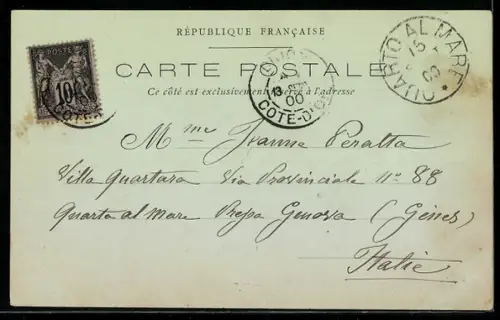 RÉPUBLIQUE FRANÇAISE
CARTE POSTALE
Ce côté est exclusivement réservé à l'adresse
POSTE
10
DIJON
13
00
COTE-D'OR
QUARTO AL MARE
15
00
Mme Jeanne Peralta
Villa Quartara Via Provinciale no 88
Quarto al mare Presso Genova (Gênes)
Italie